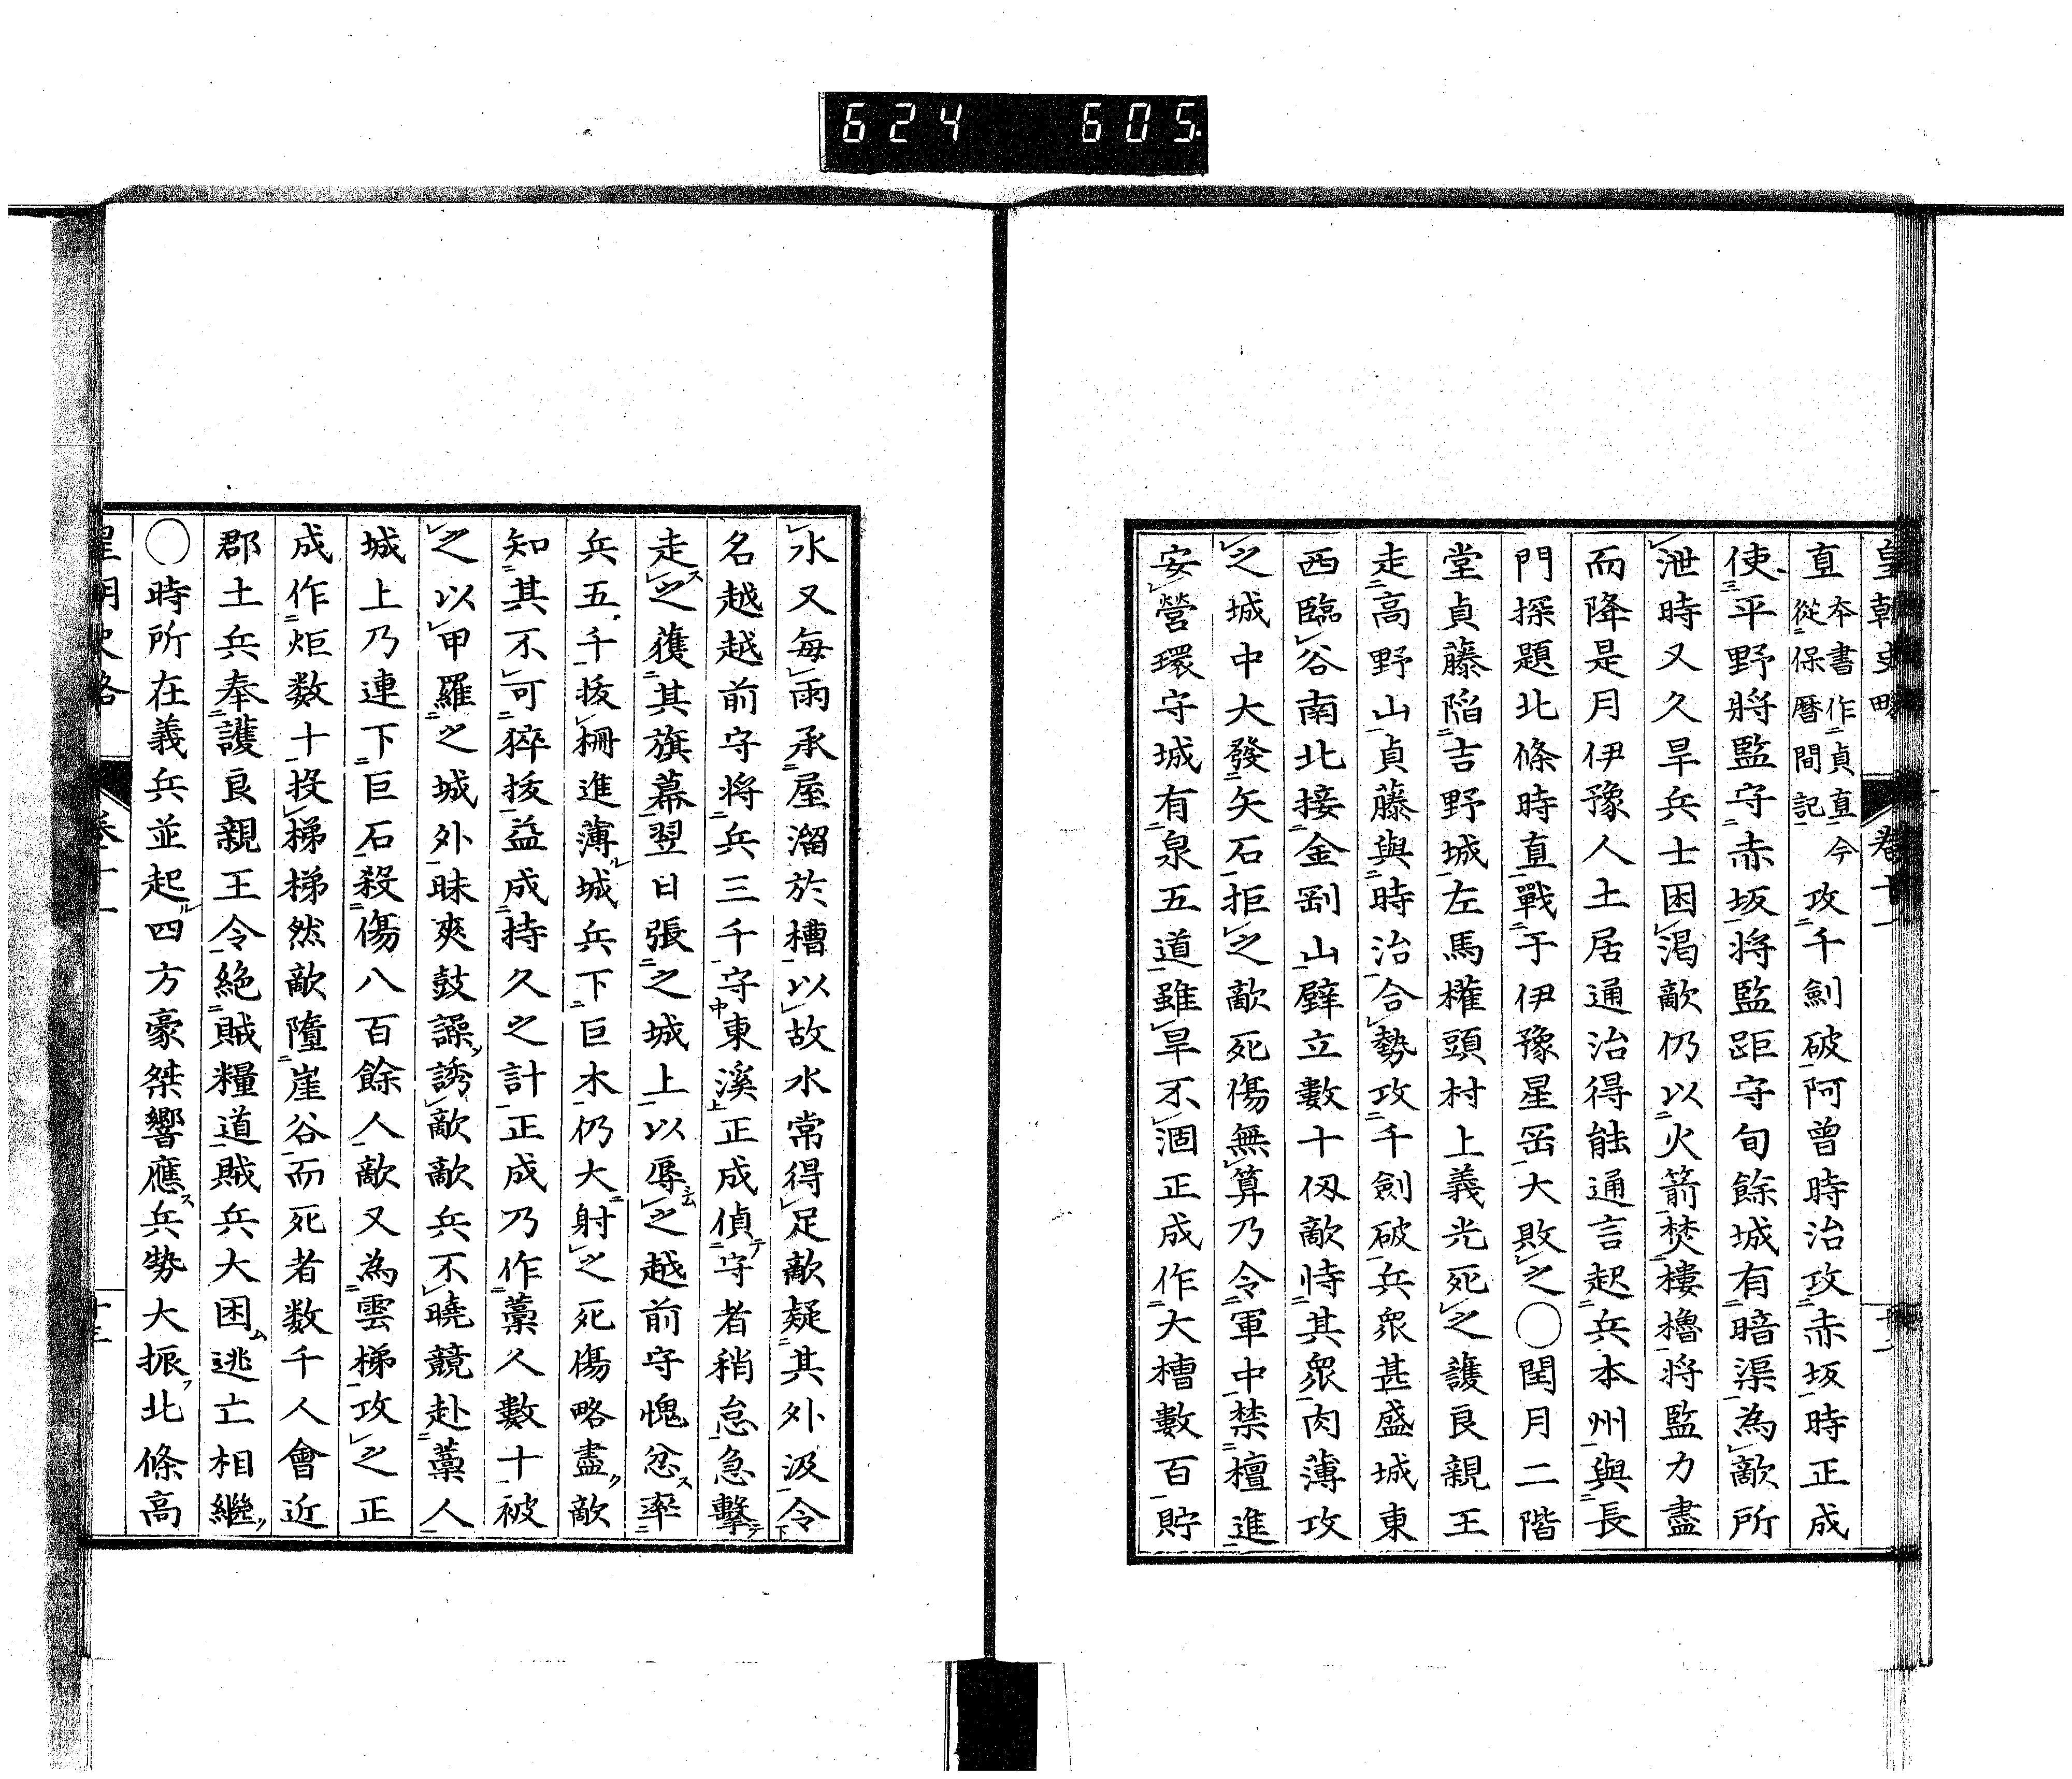 624 605
皇朝史略 卷十一
直本書作貞直今從保曆間記攻千劍破阿曾時治攻赤坂時正成
使平野將監守赤坂將監距守旬餘城有暗渠為敵所
泄時又久旱兵士困渴敵仍以火箭焚樓櫓將監力盡
而降是月伊豫人土居通治得能通言起兵本州與長
門探題北條時直戰于伊豫星岡大敗之〇閏月二階
堂貞藤陷吉野城左馬權頭村上義光死之護良親王
走高野山貞藤與時治合勢攻千劍破兵眾甚盛城東
西臨谷南北接金剛山壁立數十仭敵恃其眾肉薄攻
之城中大發矢石拒之敵死傷無算乃令軍中禁擅進
安營環守城有泉五道雖旱不涸正成作大槽數百貯
水又每雨承屋溜於槽以故水常得足敵疑其外汲令
名越越前守將兵三千守東溪正成偵守者稍怠急擊
走之獲其旗幕翌日張之城上以辱之越前守愧忿率
兵五千拔柵進薄城兵下巨木仍大射之死傷略盡敵
知其不可猝拔益成持久之計正成乃作藁人數十被
之以甲羅之城外昧爽鼓譟誘敵敵兵不曉競赴藁人
城上乃連下巨石殺傷八百餘人敵又為雲梯攻之正
成作炬数十投梯梯然敵墮崖谷而死者数千人會近
郡土兵奉護良親王令絕賊糧道賊兵大困逃亡相繼
〇時所在義兵並起四方豪桀響應兵勢大振北條高